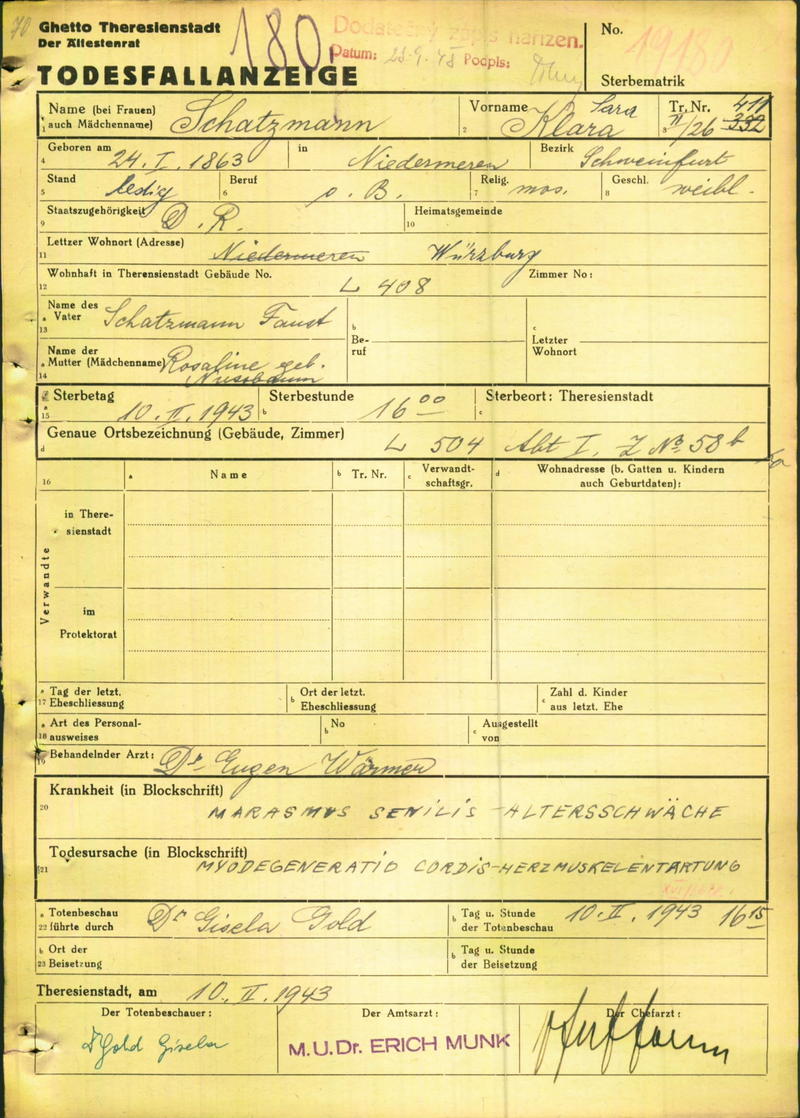 70
Ghetto Theresienstadt
Der Ältestenrat
180
Dodatečný zápis nařízen.
Datum: 28.9.48 Podpis:
No.
19180
Sterbematrik
TODESFALLANZEIGE
Name (bei Frauen)
1 auch Mädchenname) Schatzmann
Vorname Sara
2 Klara
Tr. Nr. 411
3 II/26 332
Geboren am
4 24. I. 1863
in Niedermeren
Bezirk Schweinfurt
Stand
5 ledig
Beruf
6 o. B.
Relig.
7 mos.
Geschl.
8 weibl.
Staatszugehörigkeit
9 D. R.
Heimatsgemeinde
10
Lettzer Wohnort (Adresse)
11 Niedermeren Würzburg
Wohnhaft in Therensienstadt Gebäude No.
12 L 408
Zimmer No:
Name des
a Vater
13 Schatzmann Faust
b
Be-
ruf
c
Letzter
Wohnort
Name der
a Mutter (Mädchenname) Rosaline geb.
14 Nussbaum
Sterbetag
a
15 10. II. 1943
Sterbestunde
b 16 00
Sterbeort: Theresienstadt
c
Genaue Ortsbezeichnung (Gebäude, Zimmer)
d L 504 Abt I. Z No. 58 b
16
a Name
b Tr. Nr.
c Verwandt-
schaftsgr.
d Wohnadresse (b. Gatten u. Kindern
auch Geburtdaten):
Verwandte
in There-
sienstadt
im
Protektorat
a Tag der letzt.
17 Eheschliessung
b Ort der letzt.
Eheschliessung
c Zahl d. Kinder
aus letzt. Ehe
a Art des Personal-
18 ausweises
b No
c Ausgestellt
von
19 Behandelnder Arzt: Dr. Eugen Wärmer
Krankheit (in Blockschrift)
20 MARASMUS SENILIS - ALTERSSCHWÄCHE
Todesursache (in Blockschrift)
21 MYODEGENERATIO CORDIS-HERZMUSKELENTARTUNG
a Totenbeschau
22 führte durch Dr Gisela Gold
b Tag u. Stunde
der Totenbeschau 10. II. 1943 16 15
b Ort der
23 Beisetzung
b Tag u. Stunde
der Beisetzung
Theresienstadt, am 10. II. 1943
Der Totenbeschauer:
Gold Gisela
Der Amtsarzt:
M.U.Dr. ERICH MUNK
Der Chefarzt: